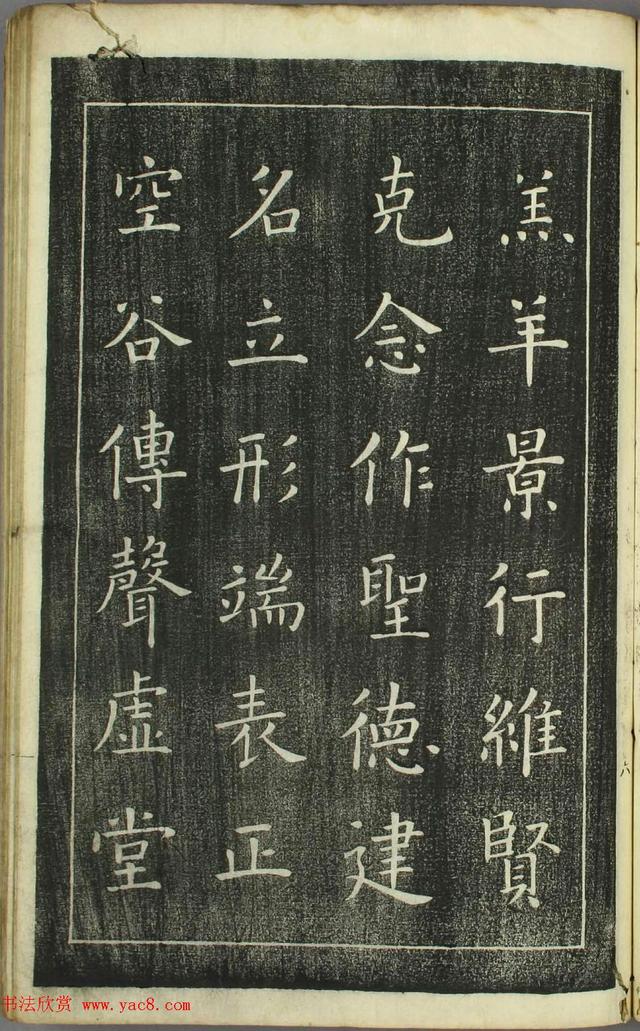 羔羊景行維賢
克念作聖德建
名立形端表正
空谷傳聲虛堂
六
书法欣赏 www.yac8.com